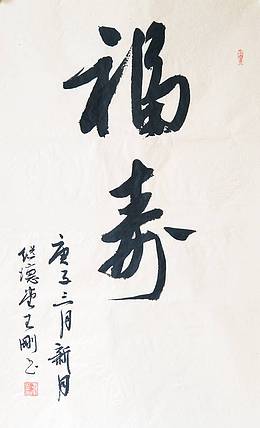 福寿
庚子三月新月
德堂王刚书